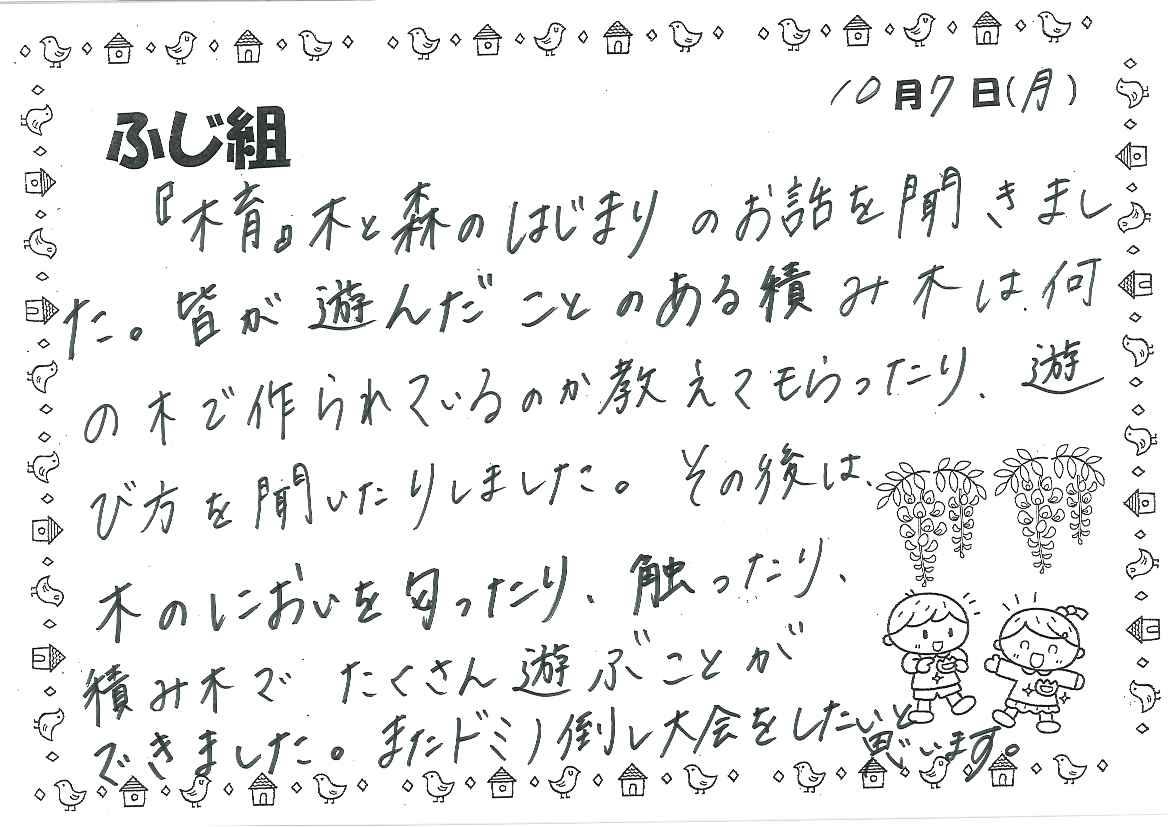 10月7日(月)
ふじ組
『木育』木と森のはじまりのお話を聞きまし
た。皆が遊んだことのある積み木は何
の木で作られているのか教えてもらったり、遊
び方を聞いたりしました。その後は、
木のにおいを匂ったり、触ったり、
積み木でたくさん遊ぶことが
できました。またドミノ倒し大会をしたいと
思います。